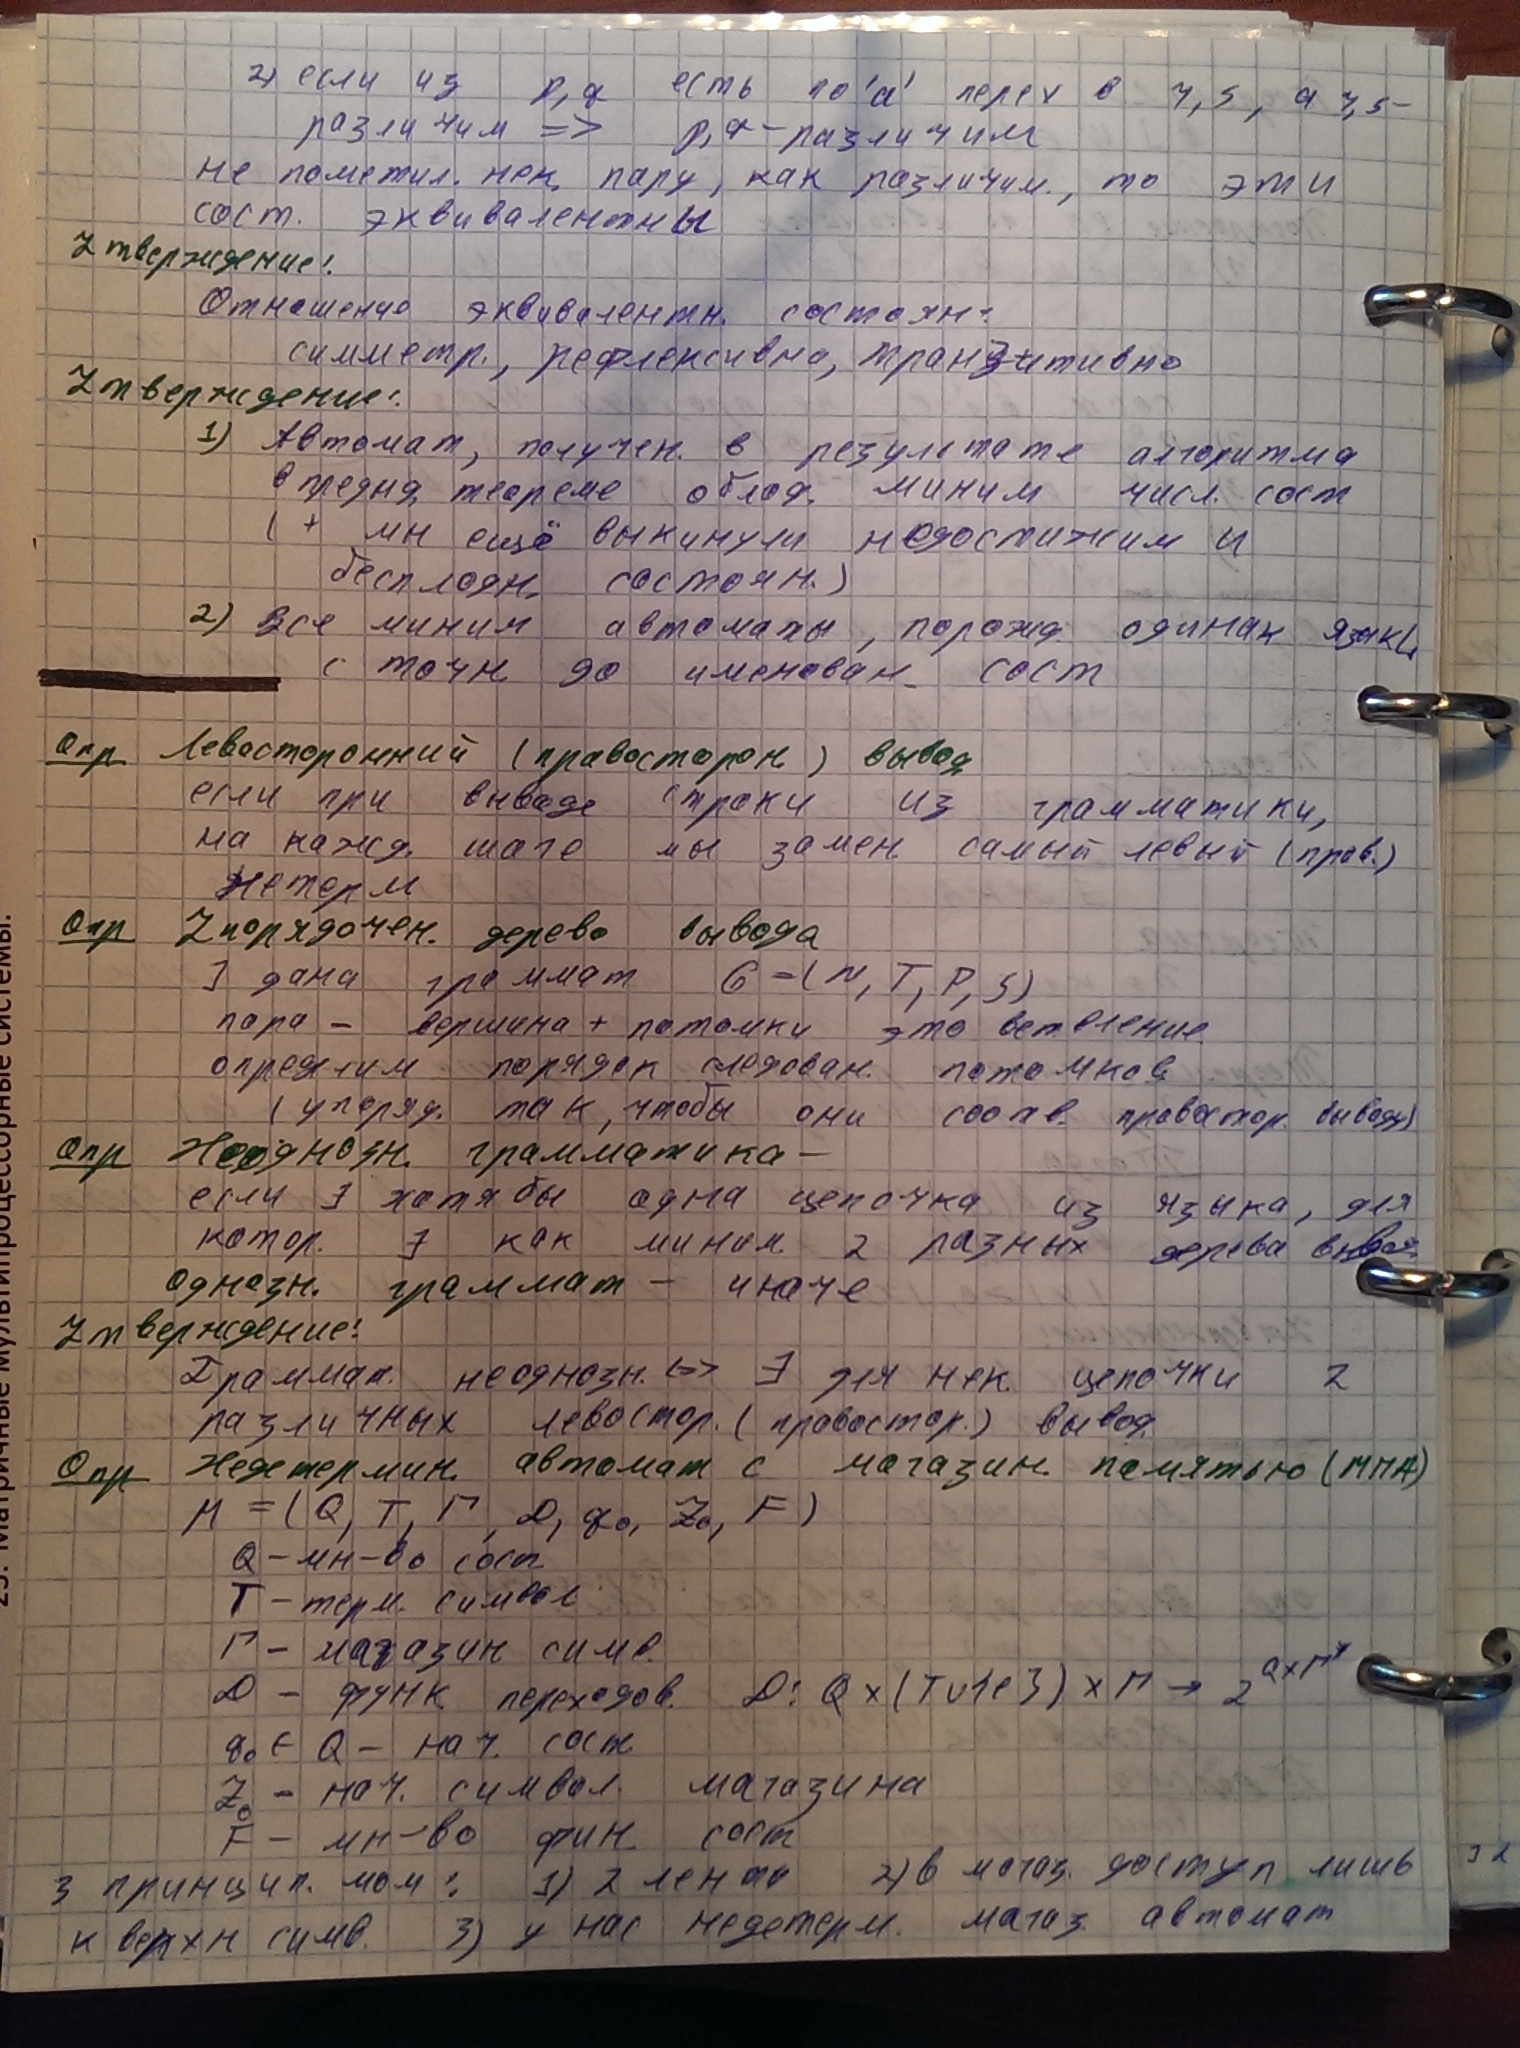 2) если из p,q есть по 'a' перех в r,s, а r,s-
различим => p,q - различим
не пометил. нек. пару, как различим., то эти
сост. эквивалентны
Утверждение:
Отношение эквивалентн. состоян:
симметр., рефлексивно, транзитивно
Утверждение:
1) Автомат, получен. в результате алгоритма
в предыд. теореме облад. миним числ. сост
(+ мн ещё выкинули недостижим и
бесплодн. состоян.)
2) Все миним автоматы, порожд. одинак языки,
с точн. до именован. сост
Опр Левосторонний (правосторон.) вывод
если при выводе строки из грамматики,
на кажд. шаге мы замен. самый левый (прав.)
нетерм
Опр Упорядочен. дерево вывода
] дана граммат G = (N, T, P, S)
пара - вершина + потомки это ветвление
определим порядок следован. потомков
(упоряд. так, чтобы они соотв. правостор. выводу)
Опр Неоднозн. грамматика -
если ∃ хотя бы одна цепочка из языка, для
котор. ∃ как миним. 2 разных дерева вывод.
однозн. граммат - иначе
Утверждение:
Граммат. неоднозн. <=> ∃ для нек. цепочки 2
различных левостор. (правостор.) вывод.
Опр Недетермин. автомат с магазин. памятью (МПА)
M = (Q, T, Г, D, q₀, Z₀, F)
Q - мн-во сост
T - терм. символ
Г - магазин симв.
D - функ. переходов. D: Q x (T ∪ {e}) x Г → 2^(Q x Г*)
q₀ ∈ Q - нач. сост.
Z₀ - нач. символ. магазина
F - мн-во фин. сост
3 принцип. мом: 1) 2 ленты 2) в магаз. доступ лишь
к верхн симв. 3) у нас недетерм. магаз. автомат
Матричные мультипроцессорные системы.